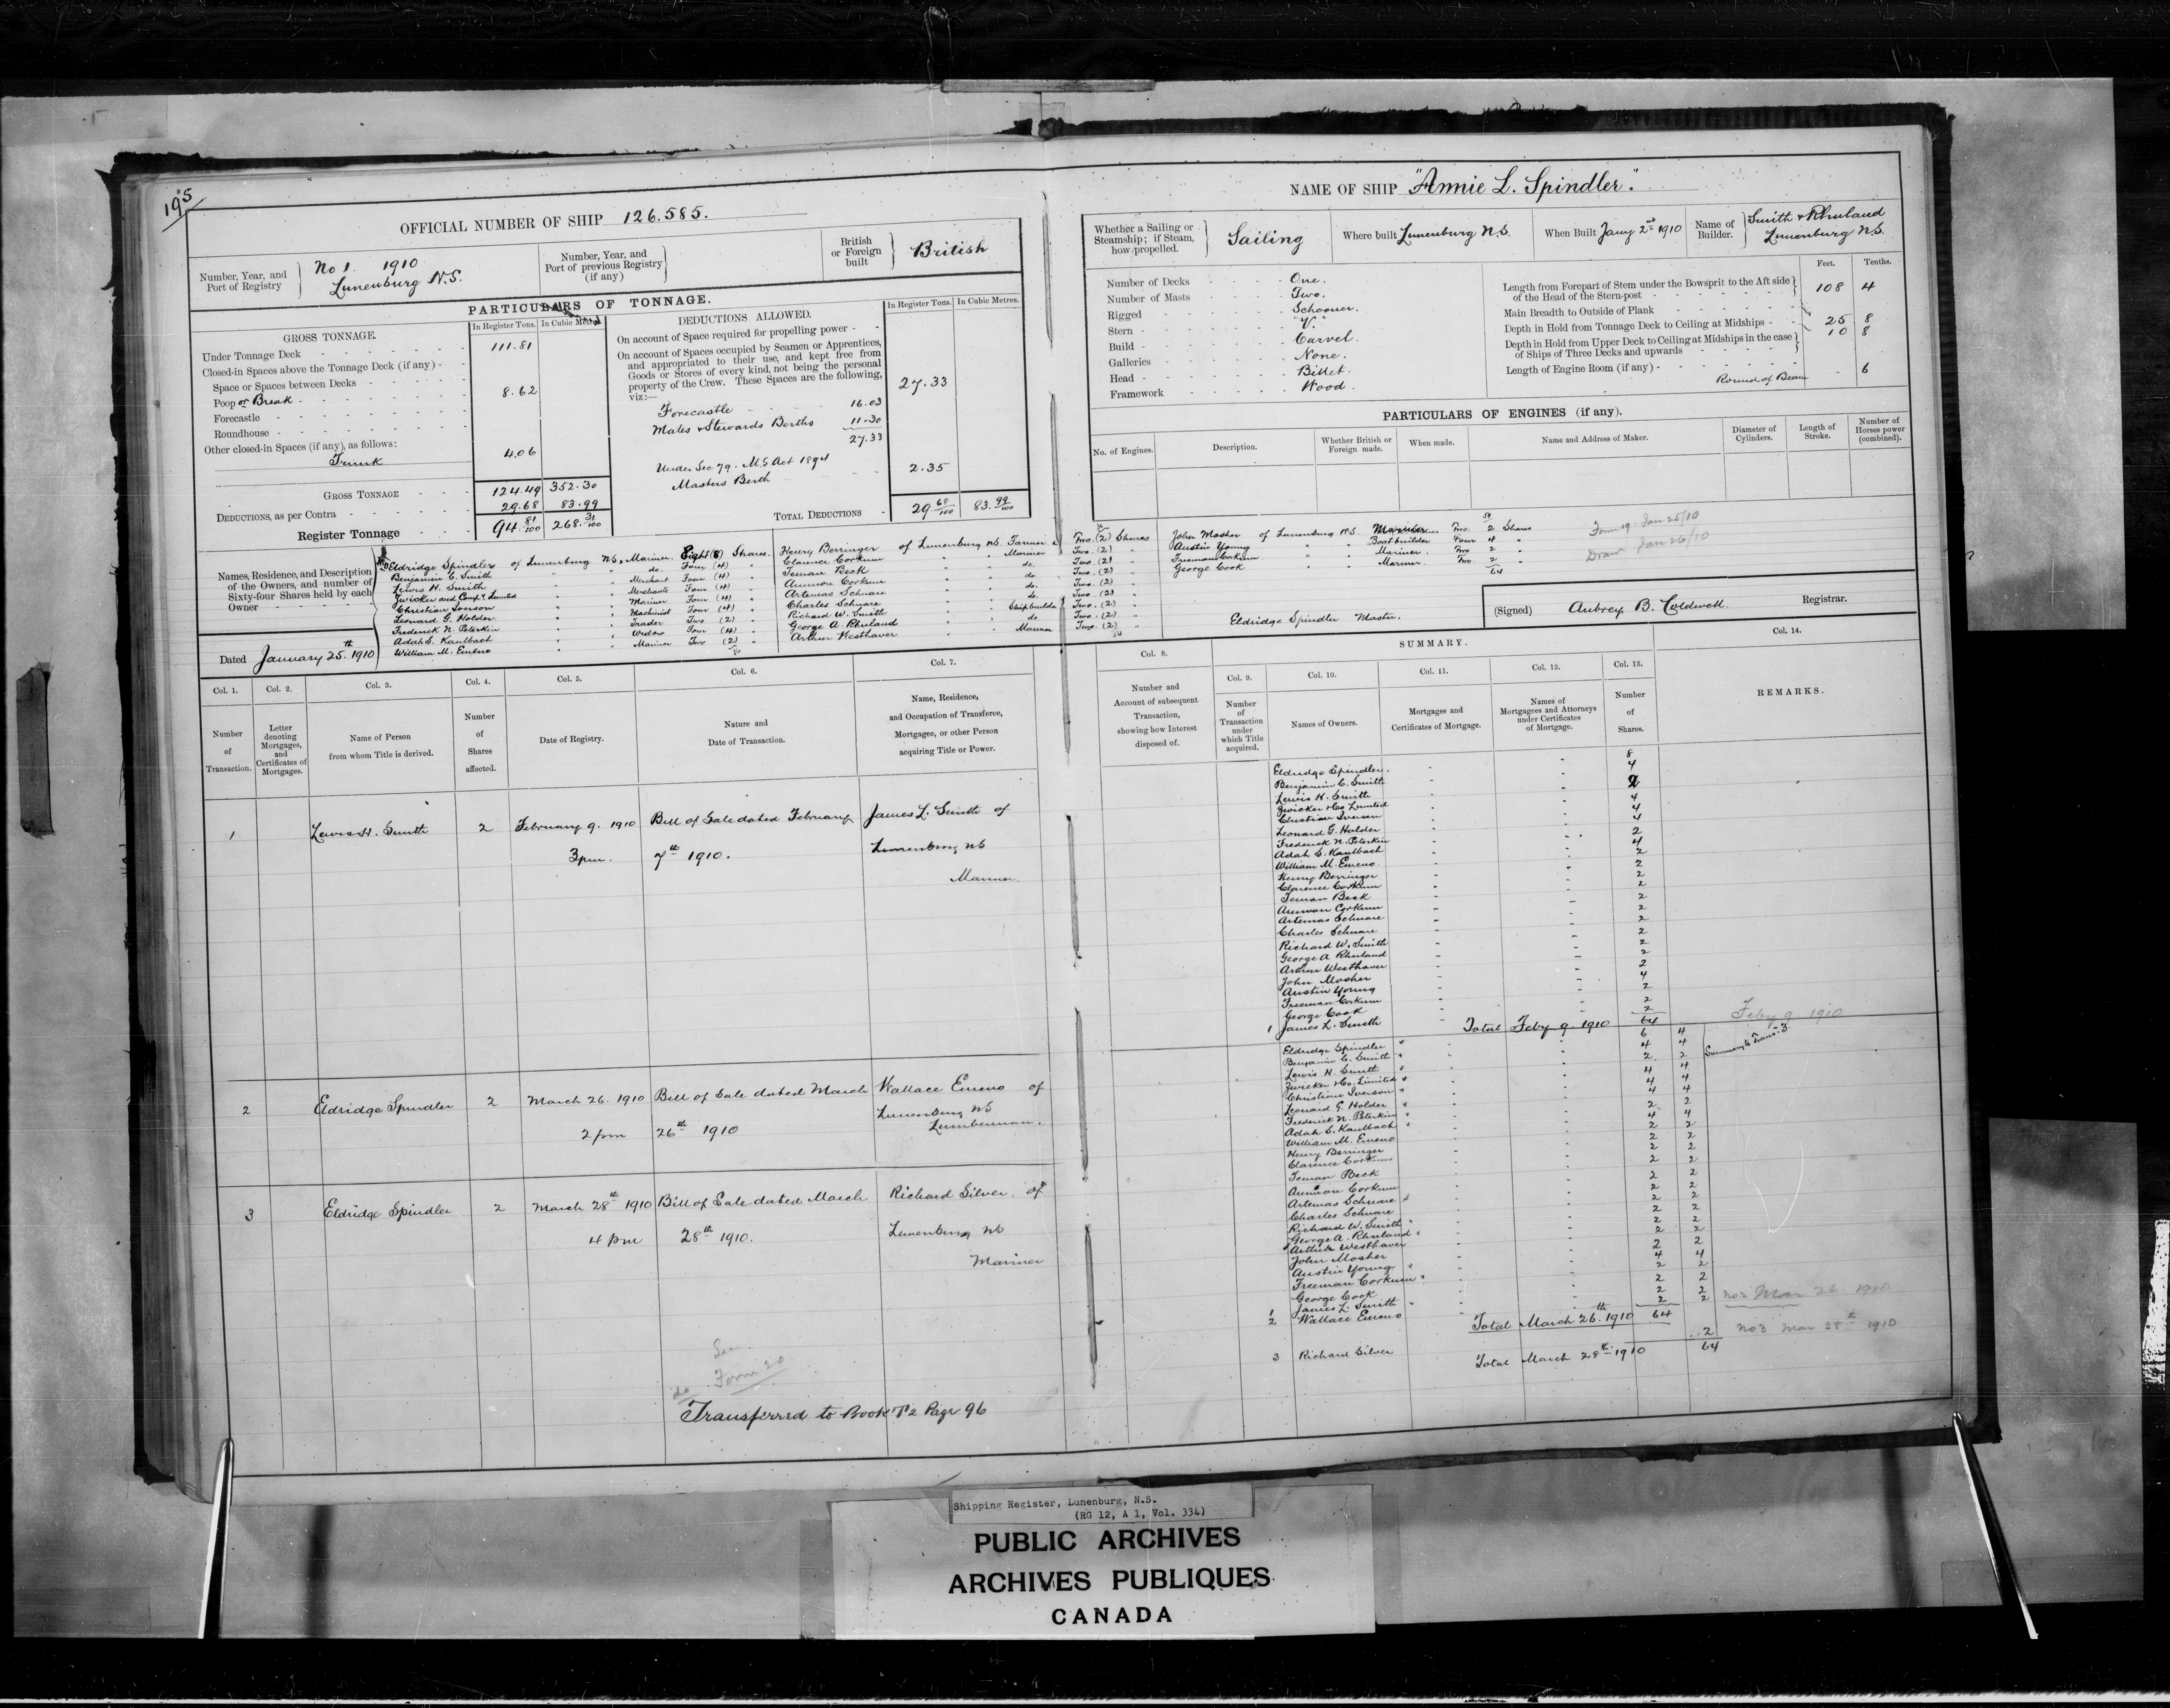 195
OFFICIAL NUMBER OF SHIP 126.585.
Number, Year, and Port of Registry } No 1. 1910 Lunenburg N.S.
Number, Year, and Port of previous Registry (if any)
British or Foreign built } British
PARTICULARS OF TONNAGE.
GROSS TONNAGE.
In Register Tons. In Cubic Metres.
Under Tonnage Deck 111.81
Closed-in Spaces above the Tonnage Deck (if any)
Space or Spaces between Decks
Poop or Break 8.62
Forecastle
Roundhouse
Other closed-in Spaces (if any), as follows:
Trunk 4.06
GROSS TONNAGE 124.49 352.30
DEDUCTIONS, as per Contra 29.68 83.99
Register Tonnage 94.81/100 268.31/100
DEDUCTIONS ALLOWED.
In Register Tons. In Cubic Metres.
On account of Space required for propelling power
On account of Spaces occupied by Seamen or Apprentices,
and appropriated to their use, and kept free from
Goods or Stores of every kind, not being the personal
property of the Crew. These Spaces are the following,
viz:— 27.33
Forecastle 16.03
Mates & Stewards Berths 11.30
27.33
Under Sec 79. M.S Act 1894
Masters Berth 2.35
TOTAL DEDUCTIONS 29 68/100 83.99/100
Names, Residence, and Description of the Owners, and number of Sixty-four Shares held by each Owner
Eldridge Spindler of Lunenburg NS, Mariner. Eight (8) Shares.
Benjamin C. Smith " " do. Four (4) "
Lewis H. Smith " " Merchant Four (4) "
Zwicker and Comp'y Limited " " Merchants Four (4) "
Christian Iverson " " Mariner Four (4) "
Leonard G. Holder " " Machinist Four (4) "
Frederick N. Peterkin " " Trader Two (2) "
Adah S. Kaulbach " " Widow Four (4) "
William M. Emeno " " Mariner Two (2) "
Henry Berringer of Lunenburg NS. Farmer Two (2) Shares
Clarence Corkum " " Mariner Two (2) "
Teman Beck " " do Two (2) "
Ammon Corkum " " do. Two (2) "
Artemas Schnare " " do. Two (2) "
Charles Schnare " " do. Two (2) "
Richard W. Smith " " Shipbuilder Two (2) "
George A. Rhuland " " do Two (2) "
Arthur Westhaver " " Mariner Two (2) "
54
Dated January 25th 1910
NAME OF SHIP "Annie L. Spindler".
Whether a Sailing or Steamship; if Steam, how propelled. } Sailing
Where built Lunenburg N.S.
When Built Jany 2nd 1910
Name of Builder. } Smith & Rhuland Lunenburg N.S.
Number of Decks One.
Number of Masts Two.
Rigged Schooner.
Stern "V."
Build Carvel.
Galleries None.
Head Billet.
Framework Wood.
Feet. Tenths.
Length from Forepart of Stem under the Bowsprit to the Aft side of the Head of the Stern-post 108 4
Main Breadth to Outside of Plank 25 8
Depth in Hold from Tonnage Deck to Ceiling at Midships 10 8
Depth in Hold from Upper Deck to Ceiling at Midships in the case of Ships of Three Decks and upwards
Length of Engine Room (if any)
Round of Beam - 6
PARTICULARS OF ENGINES (if any).
No. of Engines. Description. Whether British or Foreign made. When made. Name and Address of Maker. Diameter of Cylinders. Length of Stroke. Number of Horses power (combined).
54
John Mosher of Lunenburg N.S. Mariner Two 2 Shares
Austin Young " " Boatbuilder Four 4 "
Freeman Corkum " " Mariner. Two 2 "
George Cook " " Mariner. Two 2 "
64
Form 19. Jan 25/10
Draw Jan 26/10
Eldridge Spindler Master.
(Signed) Aubrey B. Coldwell. Registrar.
Col. 1. Col. 2. Col. 3. Col. 4. Col. 5. Col. 6. Col. 7.
Number of Transaction.
Letter denoting Mortgages, and Certificates of Mortgages.
Name of Person from whom Title is derived.
Number of Shares affected.
Date of Registry.
Nature and Date of Transaction.
Name, Residence, and Occupation of Transferee, Mortgagee, or other Person acquiring Title or Power.
1 Lewis H. Smith 2 February 9. 1910 Bill of Sale dated February James L. Smith of
3 pm. 7th 1910. Lunenburg NS
Mariner.
2 Eldridge Spindler 2 March 26. 1910 Bill of Sale dated March Wallace Emeno of
2 pm 26th 1910 Lunenburg NS
Lumberman.
3 Eldridge Spindler 2 March 28th 1910 Bill of Sale dated March Richard Silver of
4 pm 28th 1910. Lunenburg NS
Mariner
See
Form 20
Transferred to Book T2 Page 96
SUMMARY.
Col. 8. Col. 9. Col. 10. Col. 11. Col. 12. Col. 13. Col. 14.
Number and Account of subsequent Transaction, showing how Interest disposed of.
Number of Transaction under which Title acquired.
Names of Owners.
Mortgages and Certificates of Mortgage.
Names of Mortgagees and Attorneys under Certificates of Mortgage.
Number of Shares.
REMARKS.
Eldridge Spindler 8
Benjamin C. Smith 4
Lewis H. Smith 2
Zwicker & Co Limited 4
Christian Iverson 4
Leonard G. Holder 4
Frederick N. Peterkin 2
Adah S. Kaulbach 4
William M. Emeno 2
Henry Berringer 2
Clarence Corkum 2
Teman Beck 2
Ammon Corkum 2
Artemas Schnare 2
Charles Schnare 2
Richard W. Smith 2
George A Rhuland 2
Arthur Westhaver 2
John Mosher 2
Austin Young 4
Freeman Corkum 2
George Cook 2
1 James L. Smith 2
Total Feby 9. 1910 64
Feby 9 1910
Summary to Trans. 3
Eldridge Spindler 6 4
Benjamin C. Smith 4 4
Lewis H. Smith 2 2
Zwicker & Co. Limited 4 4
Christian Iverson 4 4
Leonard G. Holder 4 4
Frederick N. Peterkin 2 2
Adah S. Kaulbach 4 4
William M. Emeno 2 2
Henry Berringer 2 2
Clarence Corkum 2 2
Teman Beck 2 2
Ammon Corkum 2 2
Artemas Schnare 2 2
Charles Schnare 2 2
Richard W. Smith 2 2
George A. Rhuland 2 2
Arthur Westhaver 2 2
John Mosher 2 2
Austin Young 4 4
Freeman Corkum 2 2
George Cook 2 2
1 James L. Smith 2 2
2 Wallace Emeno 2 2
Total March 26th 1910 64
No 2 Mar 26 1910
3 Richard Silver 2
No 3 Mar 28th 1910
Total March 28th 1910 64
Shipping Register, Lunenburg, N.S.
(RG 12, A 1, Vol. 334)
PUBLIC ARCHIVES
ARCHIVES PUBLIQUES
CANADA